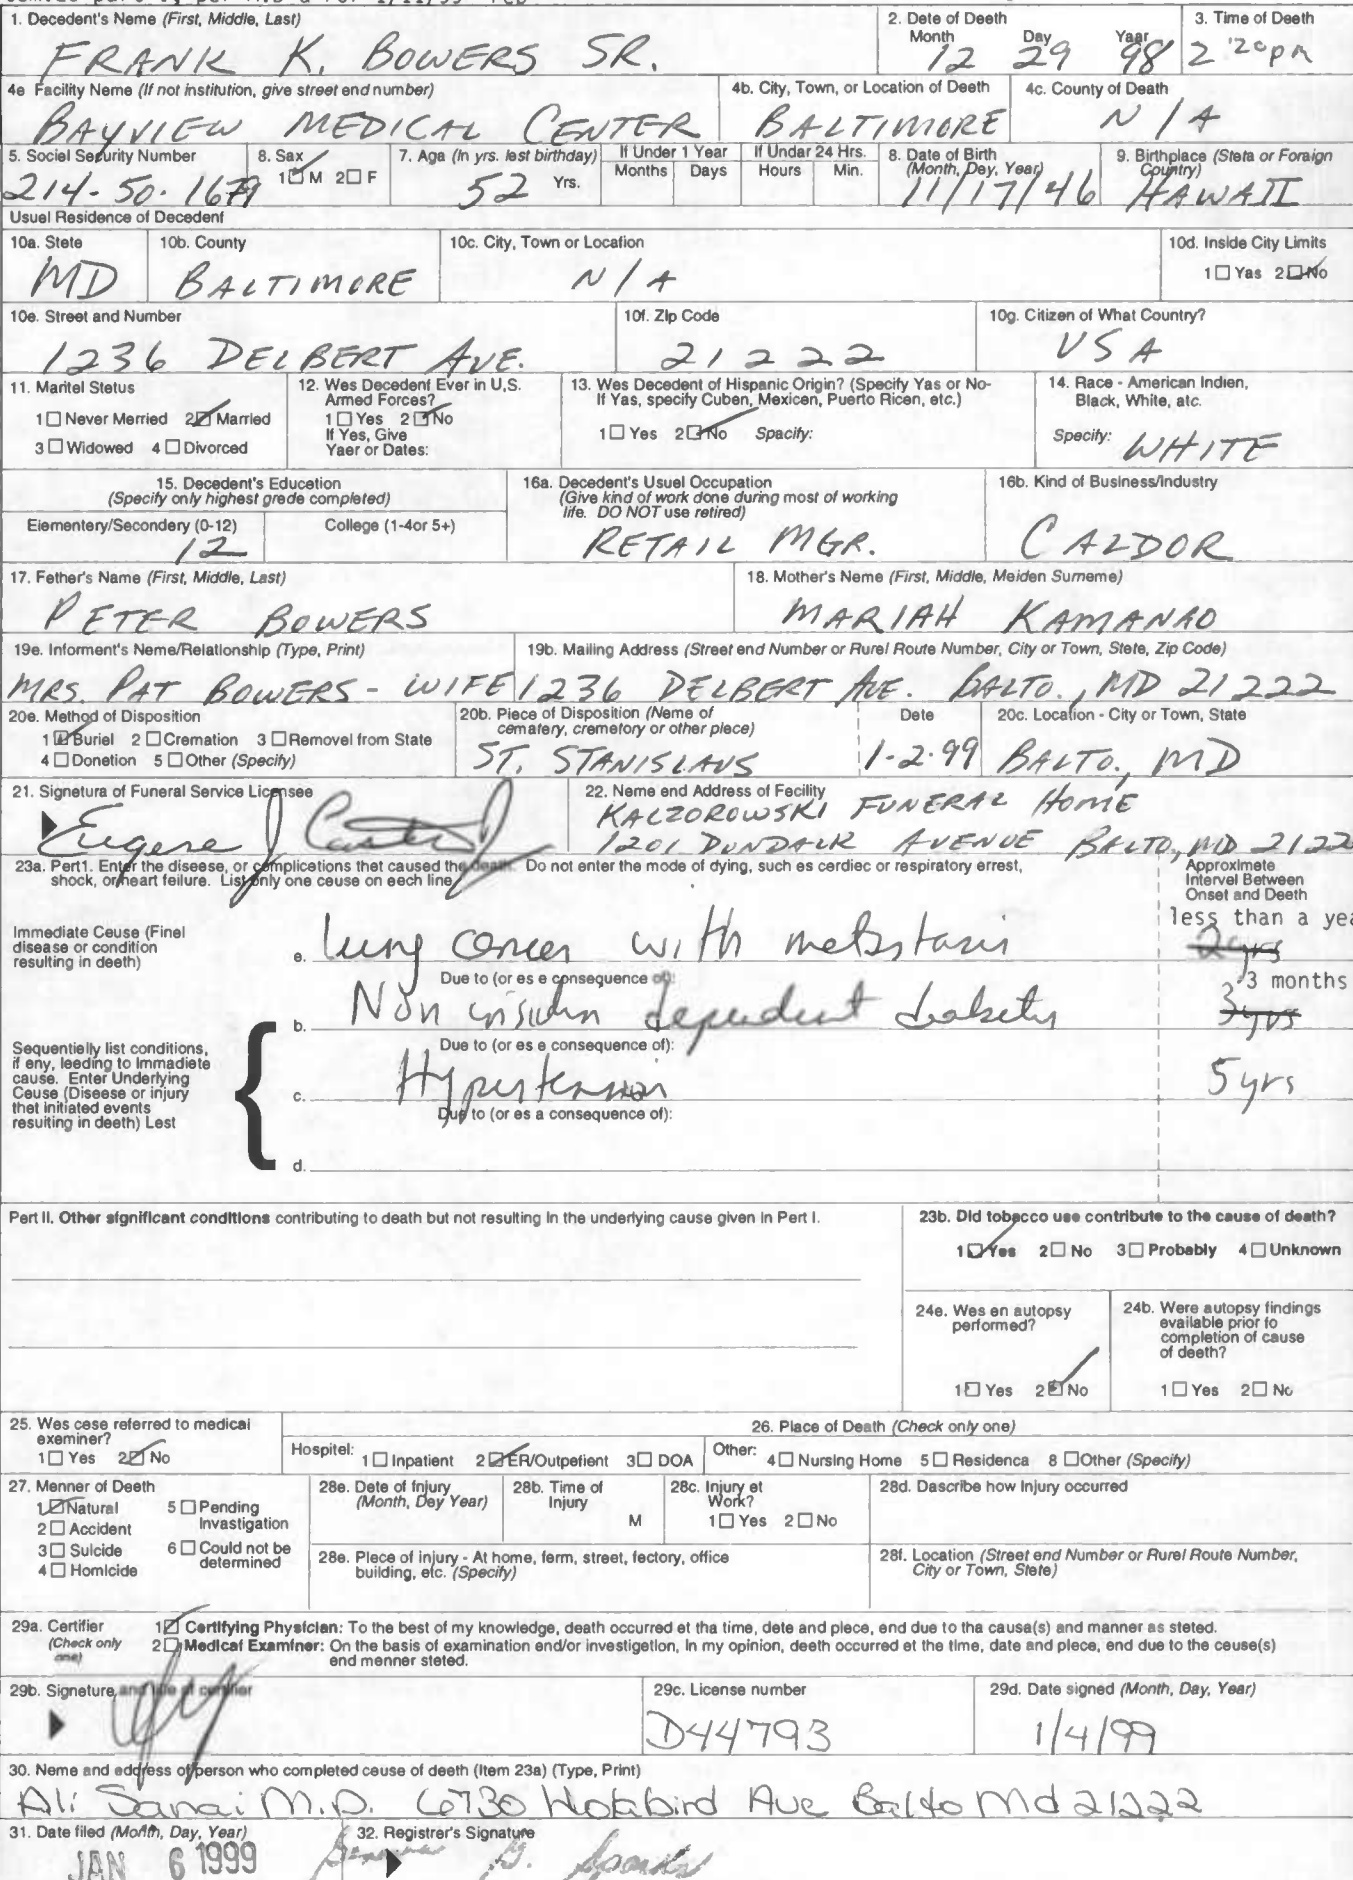 1. Decedent's Name (First, Middle, Last)
FRANK K. BOWERS SR.
2. Dete of Deeth
Month Day Yaar
12 29 98
3. Time of Deeth
2:20pm
4e Facility Name (If not institution, give street end number)
BAYVIEW MEDICAL CENTER
4b. City, Town, or Location of Deeth
BALTIMORE
4c. County of Death
N/A
5. Social Security Number
214-50-1679
8. Sax
1☑M 2☐F
7. Age (In yrs. lest birthday)
52 Yrs.
If Under 1 Year
Months Days
If Undar 24 Hrs.
Hours Min.
8. Date of Birth
(Month, Day, Year)
11/17/46
9. Birthplace (Steta or Foraign
Country)
HAWAII
Usuel Residence of Decedent
10a. Stete
MD
10b. County
BALTIMORE
10c. City, Town or Location
N/A
10d. Inside City Limits
1☐Yas 2☑No
10e. Street and Number
1236 DELBERT AVE.
10f. Zip Code
21222
10g. Citizen of What Country?
USA
11. Maritel Stetus
1☐Never Merried 2☑Married
3☐Widowed 4☐Divorced
12. Wes Decedent Ever in U.S.
Armed Forces?
1☐Yes 2☑No
If Yes, Give
Yaer or Dates:
13. Wes Decedent of Hispanic Origin? (Specify Yas or No-
If Yas, specify Cuben, Mexicen, Puerto Ricen, etc.)
1☐Yes 2☑No Spacify:
14. Race - American Indien,
Black, White, atc.
Specify: WHITE
15. Decedent's Education
(Specify only highest grede completed)
Elementery/Secondery (0-12)
12
College (1-4or 5+)
16a. Decedent's Usuel Occupation
(Give kind of work done during most of working
life. DO NOT use retired)
RETAIL MGR.
16b. Kind of Business/Industry
CALDOR
17. Father's Name (First, Middle, Last)
PETER BOWERS
18. Mother's Neme (First, Middle, Meiden Sumeme)
MARIAH KAMANAO
19e. Informent's Neme/Reletionship (Type, Print)
MRS. PAT BOWERS - WIFE
19b. Mailing Address (Street end Number or Rurel Route Number, City or Town, Stete, Zip Code)
1236 DELBERT AVE. BALTO., MD 21222
20e. Method of Disposition
1☑Buriel 2☐Cremation 3☐Removel from State
4☐Donetion 5☐Other (Specify)
20b. Piece of Disposition (Neme of
cematery, cremetory or other piece)
ST. STANISLAUS
Dete
1-2-99
20c. Location - City or Town, State
BALTO., MD
21. Signetura of Funerel Service Licensee
Eugene J
22. Neme end Address of Fecility
KACZOROWSKI FUNERAL HOME
1201 DUNDALK AVENUE BALTO, MD 2122
23a. Pert1. Enter the disease, or complications thet caused the death. Do not enter the mode of dying, such es cerdiec or respiratory errest,
shock, or heart feilure. List only one ceuse on eech line.
Approximete
Intervel Between
Onset and Deeth
less than a yea
Immediate Ceuse (Finel
disease or condition
resulting in death)
e. lung cancer with metastasis
2 yrs
Due to (or es e consequence of):
3 months
b. Non insulin dependent diabetes
3 yrs
Due to (or es e consequence of):
Sequentielly list conditions,
if eny, leeding to Immadiete
cause. Enter Underlying
Ceuse (Diseese or injury
thet initiated events
resulting in deeth) Lest
c. Hypertension
5 yrs
Due to (or es a consequence of):
d.
Pert II. Other significant conditions contributing to death but not resulting in the underlying cause given in Pert I.
23b. Did tobacco use contribute to the cause of death?
1☑Yes 2☐No 3☐Probably 4☐Unknown
24e. Wes en autopsy
performed?
1☐Yes 2☑No
24b. Were autopsy findings
eveilable prior to
completion of cause
of deeth?
1☐Yes 2☐No
25. Wes cese referred to medicel
exeminer?
1☐Yes 2☑No
26. Place of Death (Check only one)
Hospitel: 1☐Inpatient 2☑ER/Outpetient 3☐DOA
Other: 4☐Nursing Home 5☐Residenca 8☐Other (Specify)
27. Menner of Deeth
1☑Natural
2☐Accident
3☐Sulcide
4☐Homicide
5☐Pending
Invastigation
6☐Could not be
determined
28e. Dete of Injury
(Month, Dey Year)
28b. Time of
Injury
M
28c. Injury et
Work?
1☐Yes 2☐No
28d. Dascribe how Injury occurred
28e. Plece of injury - At home, ferm, street, fectory, office
building, etc. (Specify)
28f. Location (Street end Number or Rurel Route Number,
City or Town, Stete)
29a. Certifier
(Check only
one)
1☑Certifying Physician: To the best of my knowledge, death occurred et tha time, dete and plece, end due to tha causa(s) and manner as steted.
2☐Medical Examiner: On the basis of examination end/or investigetion, in my opinion, deeth occurred et the time, date and plece, end due to the ceuse(s)
end menner steted.
29b. Signeture and title of certifier
29c. License number
D44793
29d. Date signed (Month, Day, Year)
1/4/99
30. Neme and eddress of person who completed ceuse of deeth (Item 23a) (Type, Print)
Ali Sanai M.D. 6730 Holabird Ave Balto Md 21222
31. Date filed (Month, Day, Year)
JAN 6 1999
32. Registrer's Signeture
G. Sparks